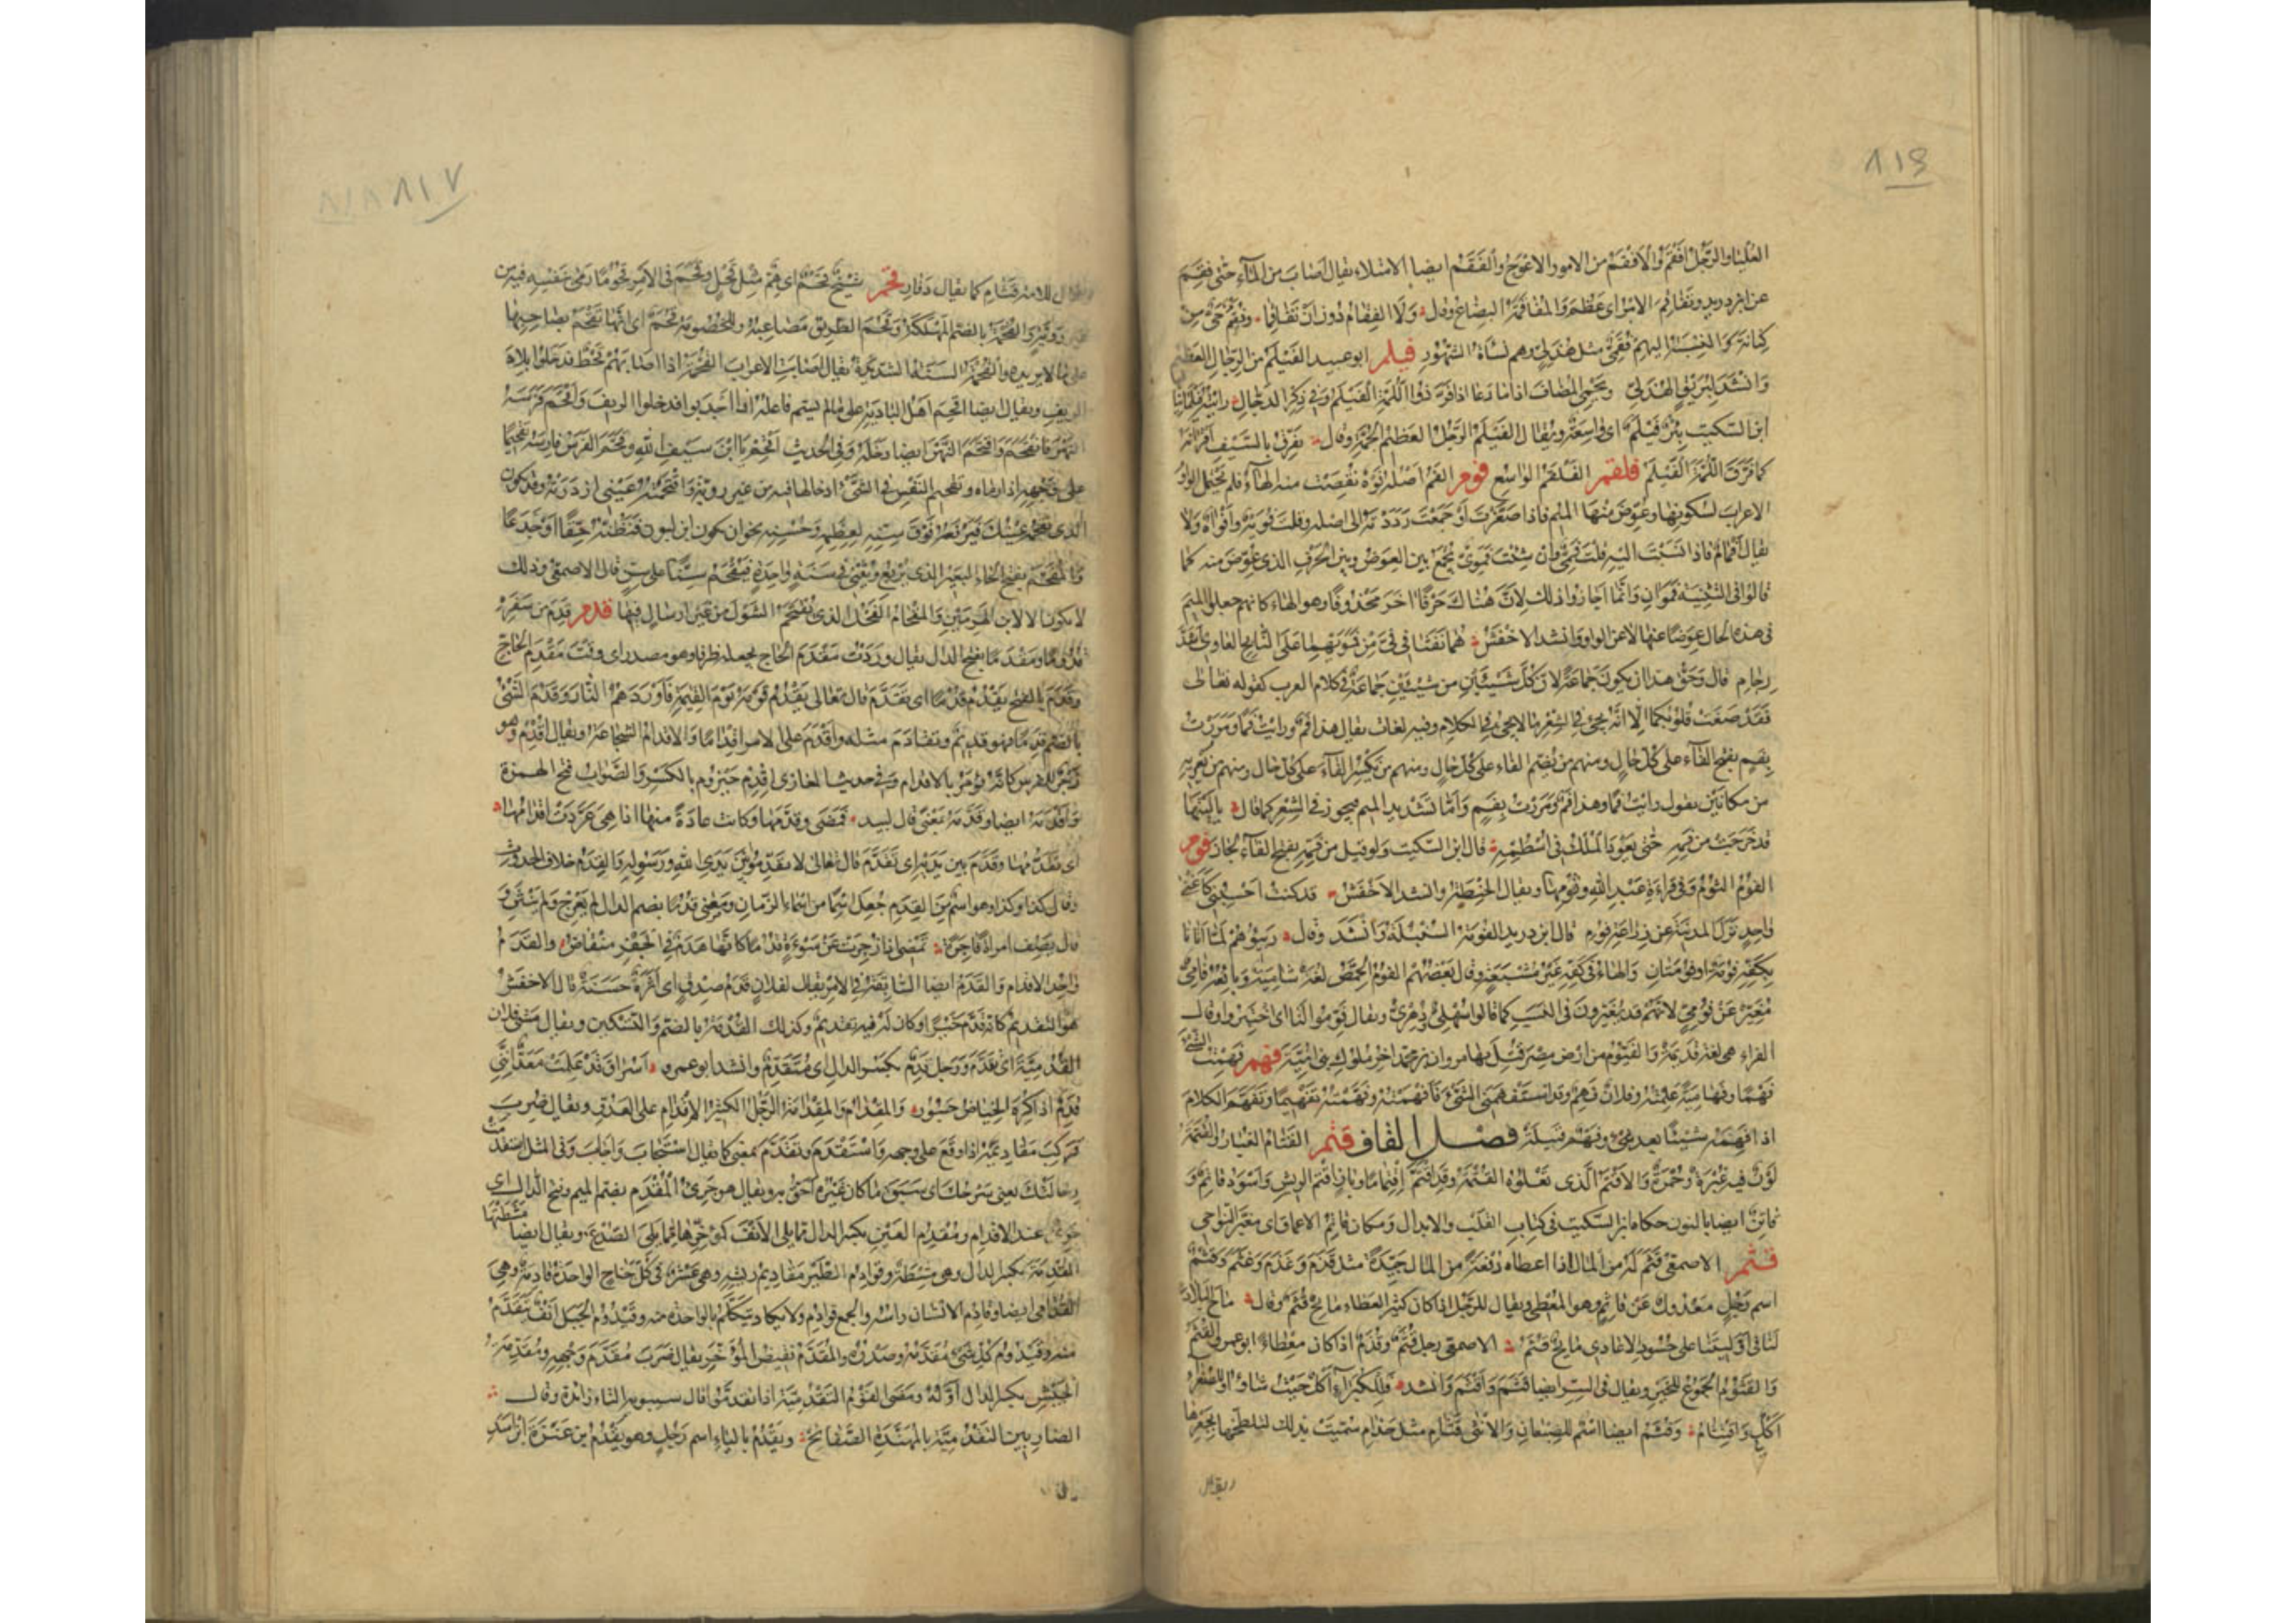 ٨١٦
العليا والرجل افقم والافقم من الامور الاعوج والفقم ايضا الامتلاء يقال اصاب من الماء حتى فقم
عن ابن دريد وتفاقم الامر اى عظم والمفاقمة البضاع وقال ولا الفغام دون ان تفاقما وفقم حى من
كنانة والنسبة اليهم فقمى مثل هذلى وهم نسأة الشهور فيلم ابو عبيد الفيلم من الرجال العظيم
وانشد لبريق الهذلى ويحمى المضاف اذا ما دعا اذا فر ذو اللمة الفيلم وفى ذكر الدجال رايته فيلمانيا
ابن السكيت بئر فيلم اى واسعة ويقال الفيلم الرجل العظيم الجمة وقال يفرق بالسيف اقرانه
كما فرق اللمة الفيلم فلقم الفلقم الواسع فوم الفم اصله فوه نقصت منه الهاء فلم تحتمل الواو
الاعراب لسكونها وعوض منها الميم فاذا صغرت او جمعت رددته الى اصله وقلت فويه وافواه ولا
يقال افمام فاذا نسبت اليه قلت فمى وان شئت فموى تجمع بين العوض وبين الحرف الذى عوض منه كما
قالوا فى التثنية فموان وانما اجازوا ذلك لان هناك حرفا اخر محذوفا وهو الهاء كانهم جعلوا الميم
فى هذه الحال عوضا عنها لا عن الواو وانشد الاخفش هما نفثا فى فى من فمويهما على النابح العاوى اشد
رجام قال وحق هذا ان يكون جماعة لان كل شيئين من شيئين جماعة فى كلام العرب كقوله تعالى
فقد صغت قلوبكما الا انه يجىء فى الشعر ما لا يجىء فى الكلام وفيه لغات يقال هذا فم ورايت فما ومررت
بفم بفتح الفاء على كل حال ومنهم من يضم الفاء على كل حال ومنهم من يكسر الفاء على كل حال ومنهم من يعربه
من مكانين يقول رايت فما وهذا فم ومررت بفم واما تشديد الميم فيجوز فى الشعر كما قال يا ليتها
قد خرجت من فمه حتى يعود الملك فى اسطمه قال ابن السكيت ولو قيل من فمه بفتح الفاء لجاز فوم
الفوم الثوم وفى قراءة عبد الله وثومها ويقال الحنطة وانشد الاخفش قد كنت احسبنى كاغنى
واحد نزل المدينة عن زراعة فوم قال ابن دريد الفومة السنبلة وانشد وقال ربيئهم لما اتانا
بكفه فومة او فومتان والهاء فى كفه غير مشبعة وقال بعضهم الفوم الحمص لغة شامية وبائعه فامى
مغير عن فومى لانهم قد يغيرون فى النسب كما قالوا سهلى ودهرى ويقال فوموا لنا اى اختبزوا وقال
الفراء هى لغة قديمة والفيوم من ارض مصر قتل بها مروان بن محمد اخر ملوك بنى امية فهم فهمت الشىء
فهما وفهامية علمته وفلان فهم وقد استفهمنى الشىء فافهمته وفهمته تفهيما وتفهم الكلام
اذا فهمه شيئا بعد شىء وفهم قبيلة فصل القاف قتم القتام الغبار والقتمة
لون فيه غبرة وحمرة والاقتم الذى تعلوه القتمة وقد اقتم اقتماما وباز اقتم الريش واسود قاتم و
قاتن ايضا بالنون حكاه ابن السكيت فى كتاب القلب والابدال ومكان قاتم الاعماق اى مغبر النواحى
قثم الاصمعى قثم له من المال اذا اعطاه دفعة من المال جيدة مثل قذم وغذم وغثم وقثم
اسم رجل معدول عن قاثم وهو المعطى ويقال للرجل اذا كان كثير العطاء مائح قثم وقال ماح البلاد
لنا فى اوليتنا على حسود الاعادى مائح قثم الاصمعى رجل قثم وقذم اذا كان معطاء ابو عمرو القثم
والقثوم الجموع للخير ويقال فى الشر ايضا قثم واقتثم وانشد فللكبراء اكل حيث شاؤا وللصغراء
اكل واقتثام وقثم ايضا اسم للضبعان والانثى قثام مثل حذام سميت بذلك لتلطخها بجعرها
ويقال
٨١٧
يقال للامة قثام كما يقال دفار قحم شيخ قحم اى هم مثل قحل وقحم فى الامر قحوما رمى بنفسه فيه من
غير روية والقحمة بالضم المهلكة وقحم الطريق مصاعبه وللخصومة قحم اى انها تقحم بصاحبها
على ما لا يريده والقحمة السنة الشديدة يقال اصابت الاعراب القحمة اذا اصابهم قحط فدخلوا بلاد
الريف ويقال ايضا اقحم اهل البادية على ما لم يسم فاعله اذا اجدبوا فدخلوا الريف واقحم فرسه
النهر فانقحم واقتحم النهر ايضا دخله وفى الحديث اقحم يا ابن سيف الله وقحم الفرس فارسه تقحيما
على وجهه اذا رماه وتقحيم النفس فى الشىء ادخالها فيه من غير روية واقتحمته عينى ازدرته وقد يكون
الذى تقحمه عينك فترفعه فوق سنه لعظمه وحسنه نحو ان يكون ابن لبون فتظنه حقا او جذعا
والمقحم بفتح الحاء البعير الذى يربع ويثنى فى سنة واحدة فيقحم سنا على سن قال الاصمعى وذلك
لا يكون الا لابن الهرمين والمقحام الفحل الذى يقتحم الشول من غير ارسال فيها قدم قدم من سفره
قدوما ومقدما بفتح الدال يقال وردت مقدم الحاج تجعله ظرفا وهو مصدر اى وقت مقدم الحاج
وقدم بالفتح يقدم قدما اى تقدم قال تعالى يقدم قومه يوم القيمة فاوردهم النار وقدم الشىء
بالضم قدما فهو قديم وتقادم مثله واقدم على الامر اقداما والاقدام الشجاعة ويقال اقدم وهو
زجر للفرس كانه يؤمر بالاقدام وفى حديث المغازى اقدم حيزوم بالكسر والصواب فتح الهمزة
واقدمه ايضا وقدمه بمعنى قال لبيد فمضى وقدمها وكانت عادة منها اذا هى عردت اقدامها
اى تقدمها وقدم بين يديه اى تقدم قال تعالى لا تقدموا بين يدى الله ورسوله والقدم خلاف الحدوث
وقال كذا وكذا وهو اسم من القدم جعل اسما من اسماء الزمان ومضى قدما بضم الدال لم يعرج ولم ينثن و
قال يصف امراة فاجرة تمضى اذا زجرت عن سوءة قدما كانها هدم فى الجفر منقاض والقدم
واحد الاقدام والقدم ايضا السابقة فى الامر يقال لفلان قدم صدق اى اثرة حسنة قال الاخفش
هو التقديم كانه قدم خيرا وكان له فيه تقديم وكذلك القدمة بالضم والتسكين ويقال مشى فلان
القدمية اى تقدم ورجل قدم بكسر الدال اى متقدم وانشد ابو عمرو اسراق قد علمت معد اننى
قدم اذا كره الحياض جسور والمقدام والمقدامة الرجل الكثير الاقدام على العدو ويقال ضرب
فركب مقاديمه اذا وقع على وجهه واستقدم وتقدم بمعنى كما يقال استجاب واجاب وفى المثل استقدمت
رحالتك يعنى سرجك اى سبق ما كان غيره احق به ويقال هو جرىء المقدم بضم الميم وفتح الدال اى
جرىء عند الاقدام ومقدم العين بكسر الدال مما يلى الانف كمؤخرها مما يلى الصدغ ويقال ايضا مشطتها
المقدمة بكسر الدال وهى مشطة وقوادم الطير مقاديم ريشه وهى عشر فى كل جناح الواحدة قادمة وهى
القدامى ايضا وقادم الانسان راسه والجمع قوادم ولا يكاد يتكلم بالواحد منه وقيدوم الجبل انف يتقدم
منه وقيدوم كل شىء مقدمه وصدره والمقدم نقيض المؤخر يقال ضرب مقدم وجهه ومقدمة
الجيش بكسر الدال اوله ومضى القوم التقدمية اذا تقدموا قال سيبويه التاء زائدة وقال
الضاربين التقدمية بالمهندة الصفائح ويقدم بالياء اسم رجل وهو يقدم بن عنزة بن اسد